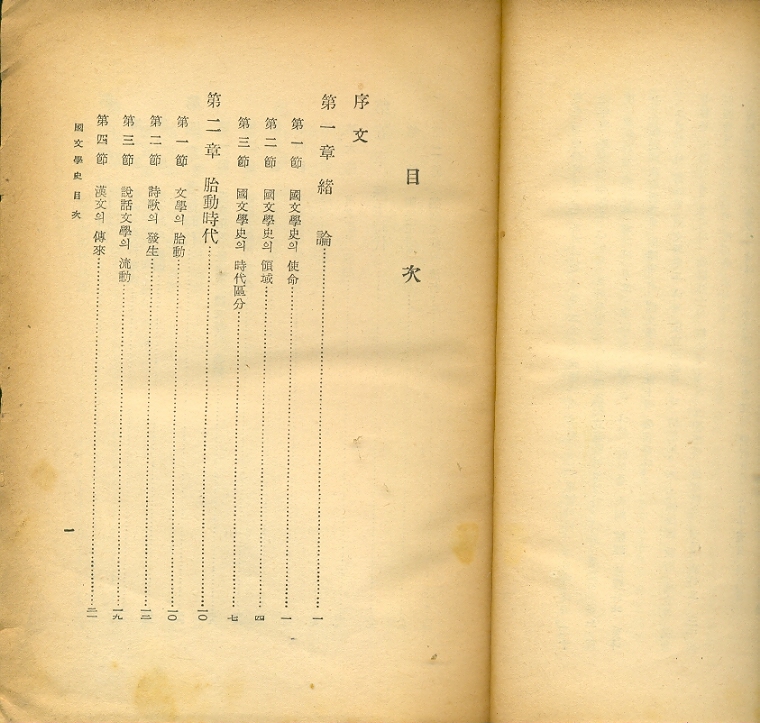 目次
序文
第一章 緖論……一
第一節 國文學史의 使命……一
第二節 國文學史의 領域……四
第三節 國文學史의 時代區分……七
第二章 胎動時代……一〇
第一節 文學의 胎動……一〇
第二節 詩歌의 發生……一二
第三節 說話文學의 流動……一九
第四節 漢文의 傳來……二一
國文學史 目次
一